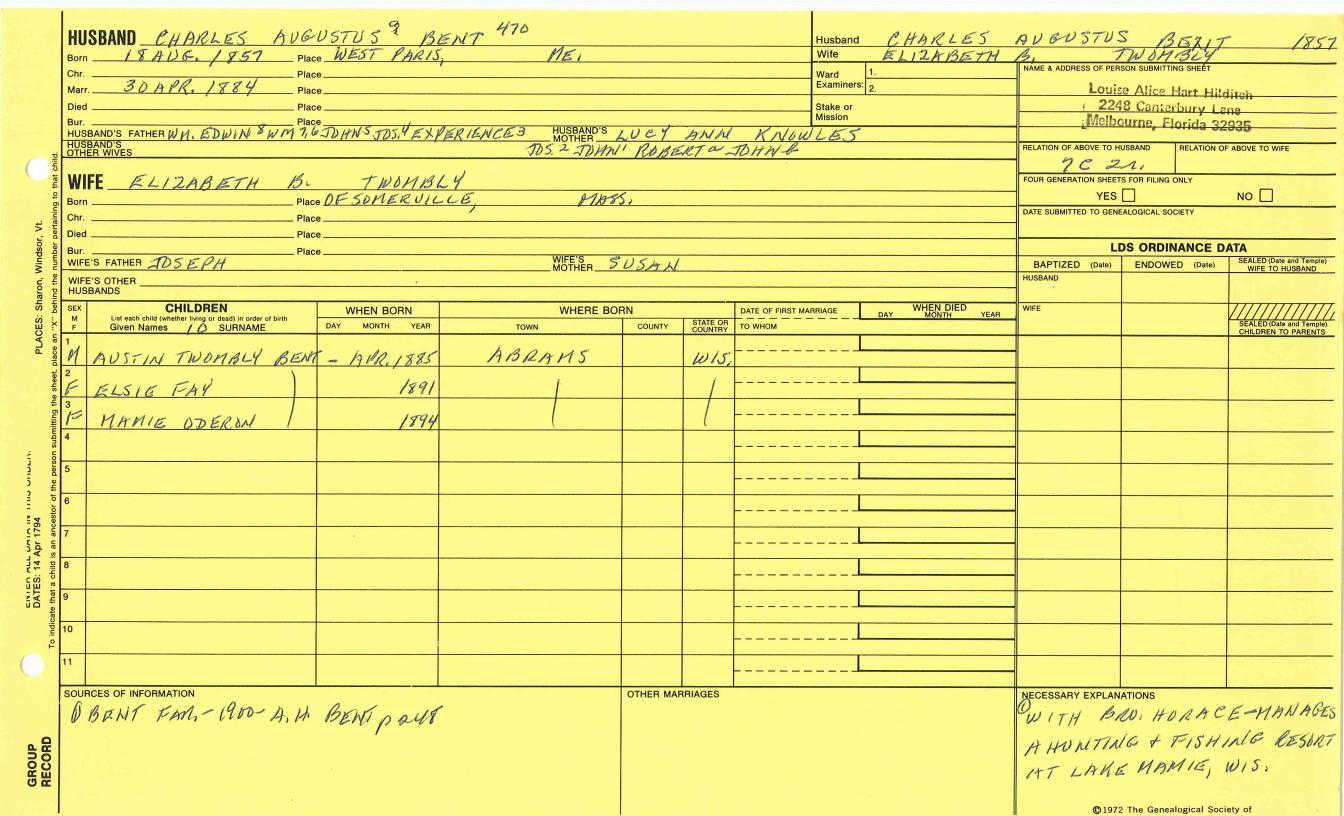 HUSBAND CHARLES AUGUSTUS 9 BENT 470
Born 18 AUG. 1857 Place WEST PARIS, ME.
Chr. Place
Marr. 30 APR. 1884 Place
Died Place
Bur. Place
HUSBAND'S FATHER WM. EDWIN 8 WM 7,6 JOHN 5 JOS. 4 EXPERIENCE 3 HUSBAND'S MOTHER LUCY ANN KNOWLES
HUSBAND'S OTHER WIVES JOS. 2 JOHN 1 ROBERT a JOHN b
WIFE ELIZABETH B. TWOMBLY
Born Place OF SOMERVILLE, MASS.
Chr. Place
Died Place
Bur. Place
WIFE'S FATHER JOSEPH WIFE'S MOTHER SUSAN
WIFE'S OTHER HUSBANDS
Husband CHARLES AUGUSTUS BENT 1857
Wife ELIZABETH B. TWOMBLY
Ward Examiners: 1.
2.
Stake or Mission
NAME & ADDRESS OF PERSON SUBMITTING SHEET
Louise Alice Hart Hilditch
2248 Canterbury Lane
Melbourne, Florida 32935
RELATION OF ABOVE TO HUSBAND RELATION OF ABOVE TO WIFE
7C 2r.
FOUR GENERATION SHEETS FOR FILING ONLY
YES NO
DATE SUBMITTED TO GENEALOGICAL SOCIETY
LDS ORDINANCE DATA
BAPTIZED (Date) ENDOWED (Date) SEALED (Date and Temple) WIFE TO HUSBAND
HUSBAND
WIFE
SEALED (Date and Temple) CHILDREN TO PARENTS
SEX M F CHILDREN WHEN BORN WHERE BORN DATE OF FIRST MARRIAGE WHEN DIED
List each child (whether living or dead) in order of birth
Given Names 10 SURNAME DAY MONTH YEAR TOWN COUNTY STATE OR COUNTRY TO WHOM DAY MONTH YEAR
1 M AUSTIN TWOMBLY BENT - APR. 1885 ABRAMS WIS.
2 F ELSIE FAY 1891
3 F MAMIE ODERON 1894
4
5
6
7
8
9
10
11
SOURCES OF INFORMATION
① BENT FAM.-1900- A.H. BENT
OTHER MARRIAGES
NECESSARY EXPLANATIONS
① WITH BRO. HORACE-MANAGES
A HUNTING & FISHING RESORT
AT LAKE MAMIE, WIS.
©1972 The Genealogical Society of
PLACES: Sharon, Windsor, Vt.
ENTER ALL DATA IN THIS ORDER:
DATES: 14 Apr 1794
To indicate that a child is an ancestor of the person submitting the sheet, place an "X" behind the number pertaining to that child.
GROUP RECORD